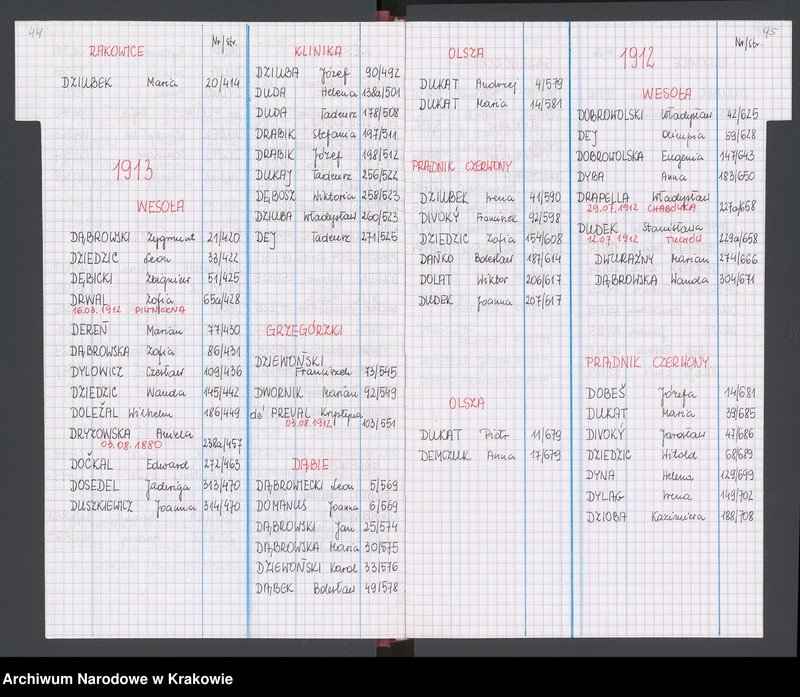 44
RAKOWICE
Nr/str.
DZIUBEK Maria 20/414
1913
WESOŁA
DĄBROWSKI Zygmunt 21/420
DZIEDZIC Leon 33/422
DĘBICKI Zbigniew 51/425
DRWAL Zofia 65a/428
16.03.1912 PIWNICZNA
DEREŃ Marian 77/430
DĄBROWSKA Zofia 86/431
DYLOWICZ Czesław 109/436
DZIEDZIC Wanda 145/442
DOLEŻAL Wilhelm 186/449
DRYZOWSKA Aniela
03.08.1880 238a/457
DOČKAL Edward 272/463
DOSEDEL Jadwiga 313/470
DUSZKIEWICZ Joanna 314/470
KLINIKA
DZIUBA Józef 90/492
DUDA Helena 138a/501
DUDA Tadeusz 178/508
DRABIK Stefania 197/511
DRABIK Józef 198/512
DUKAJ Tadeusz 256/522
DĘBOSZ Wiktoria 258/523
DZIUBA Władysław 260/523
DEJ Tadeusz 271/525
GRZEGÓRZKI
DZIEWOŃSKI
Franciszek 73/545
DWORNIK Marian 92/549
de' PREVAL Krystyna
03.08.1912 103/551
DĄBIE
DĄBROWIECKI Leon 5/569
DOMANUS Joanna 6/569
DĄBROWSKI Jan 25/574
DĄBROWSKA Maria 30/575
DZIEWOŃSKI Karol 33/576
DĄBEK Bolesław 49/578
OLSZA
DUKAT Andrzej 4/579
DUKAT Maria 14/581
PRĄDNIK CZERWONY
DZIUBEK Irena 41/590
DIVOKÝ Franciszek 92/598
DZIEDZIC Zofia 154/608
DAŃKO Bolesław 187/614
DOLAT Wiktor 206/617
DUDEK Joanna 207/617
OLSZA
DUKAT Piotr 11/679
DEMCZUK Anna 17/679
45
1912
Nr/str.
WESOŁA
DOBROWOLSKI Władysław 42/625
DEJ Olimpia 59/628
DOBROWOLSKA Eugenia 147/643
DYBA Anna 183/650
DRAPELLA Władysław
29.07.1912 CHABÓWKA 227a/658
DUDEK Stanisława
12.07.1912 TUCHÓW 229a/658
DWURAŹNY Marian 274/666
DĄBROWSKA Wanda 304/671
PRĄDNIK CZERWONY
DOBEŠ Józefa 14/681
DUKAT Maria 39/685
DIVOKÝ Jarosław 47/686
DZIEDZIC Witold 68/689
DYNA Helena 129/699
DYLĄG Irena 149/702
DZIOBA Kazimiera 188/708
Archiwum Narodowe w Krakowie